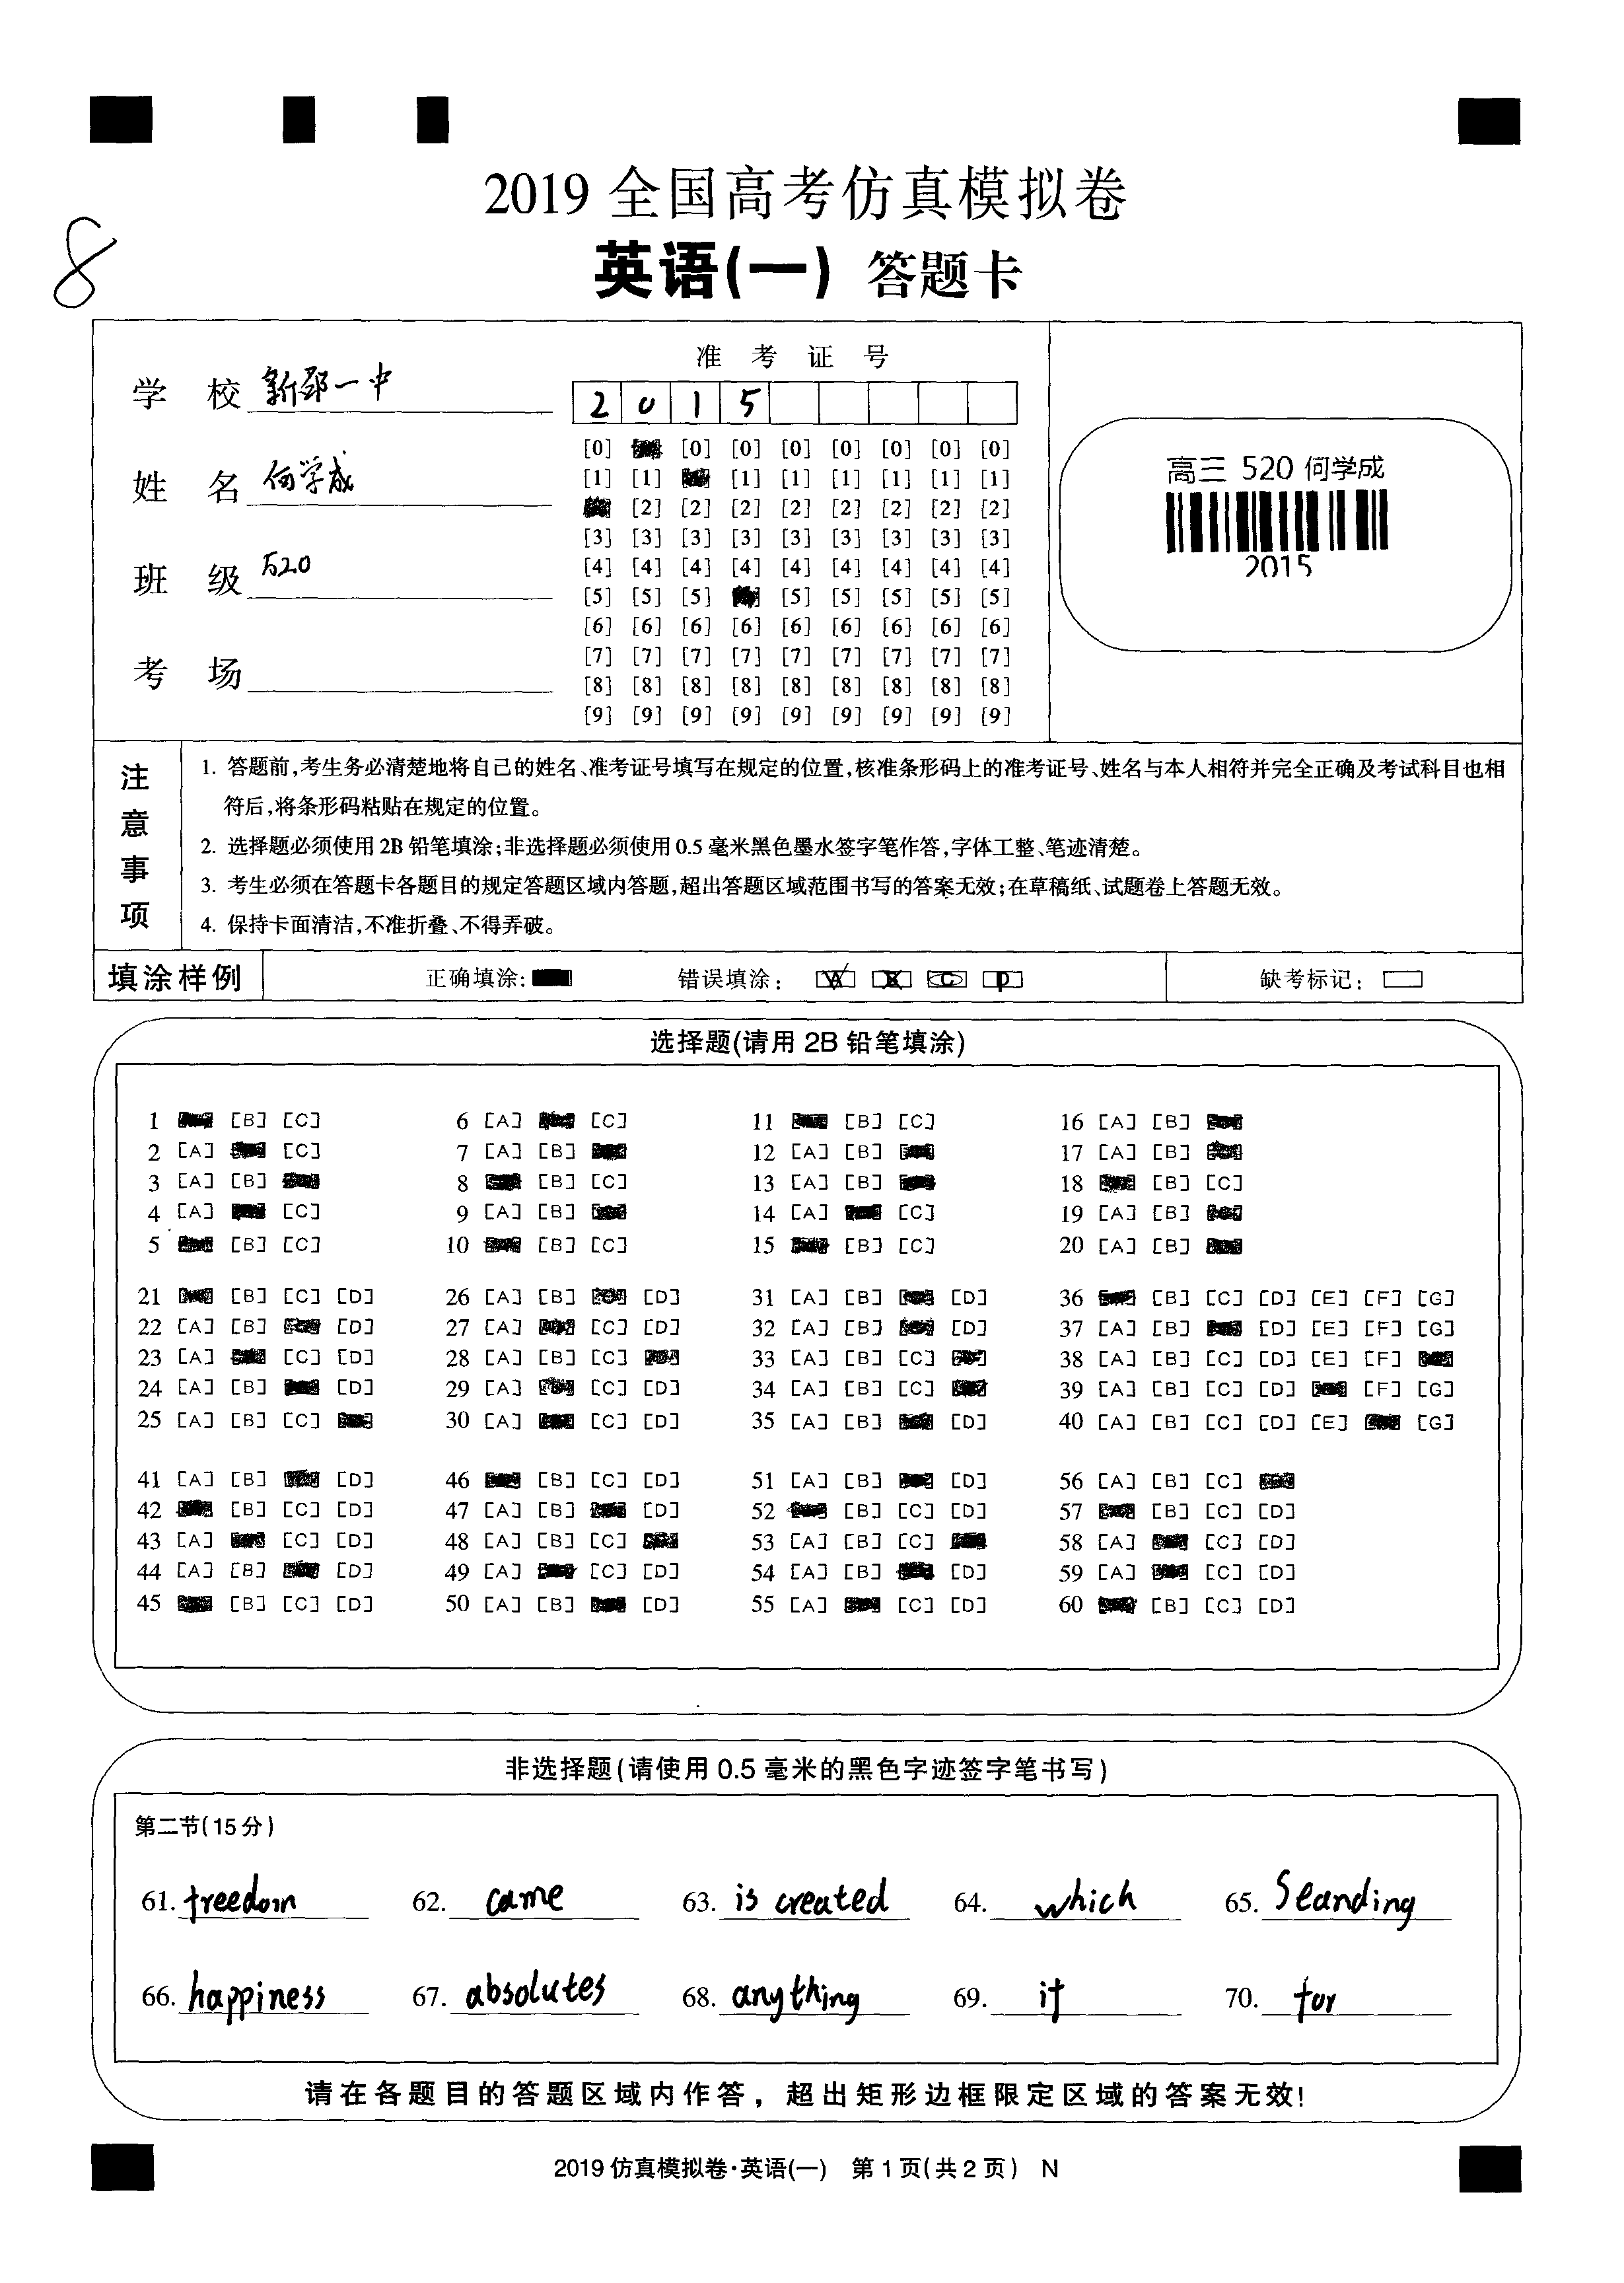 2019 全国高考仿真模拟卷
英语(一) 答题卡
8
学 校 新邵一中
姓 名 何学成
班 级 520
考 场
准 考 证 号
2 0 1 5
[0] [0] [0] [0] [0] [0] [0] [0]
[1] [1] [1] [1] [1] [1] [1] [1]
[2] [2] [2] [2] [2] [2] [2] [2]
[3] [3] [3] [3] [3] [3] [3] [3] [3]
[4] [4] [4] [4] [4] [4] [4] [4] [4]
[5] [5] [5] [5] [5] [5] [5] [5]
[6] [6] [6] [6] [6] [6] [6] [6] [6]
[7] [7] [7] [7] [7] [7] [7] [7] [7]
[8] [8] [8] [8] [8] [8] [8] [8] [8]
[9] [9] [9] [9] [9] [9] [9] [9] [9]
高三 520 何学成
2015
注意事项
1. 答题前,考生务必清楚地将自己的姓名、准考证号填写在规定的位置,核准条形码上的准考证号、姓名与本人相符并完全正确及考试科目也相
符后,将条形码粘贴在规定的位置。
2. 选择题必须使用 2B 铅笔填涂;非选择题必须使用 0.5 毫米黑色墨水签字笔作答,字体工整、笔迹清楚。
3. 考生必须在答题卡各题目的规定答题区域内答题,超出答题区域范围书写的答案无效;在草稿纸、试题卷上答题无效。
4. 保持卡面清洁,不准折叠、不得弄破。
填涂样例 正确填涂: 错误填涂: A B C D 缺考标记:
选择题(请用 2B 铅笔填涂)
1 [B] [C] 6 [A] [C] 11 [B] [C] 16 [A] [B]
2 [A] [C] 7 [A] [B] 12 [A] [B] 17 [A] [B]
3 [A] [B] 8 [B] [C] 13 [A] [B] 18 [B] [C]
4 [A] [C] 9 [A] [B] 14 [A] [C] 19 [A] [B]
5 [B] [C] 10 [B] [C] 15 [B] [C] 20 [A] [B]
21 [B] [C] [D] 26 [A] [B] [D] 31 [A] [B] [D] 36 [B] [C] [D] [E] [F] [G]
22 [A] [B] [D] 27 [A] [C] [D] 32 [A] [B] [D] 37 [A] [B] [D] [E] [F] [G]
23 [A] [C] [D] 28 [A] [B] [C] 33 [A] [B] [C] 38 [A] [B] [C] [D] [E] [F]
24 [A] [B] [D] 29 [A] [C] [D] 34 [A] [B] [C] 39 [A] [B] [C] [D] [F] [G]
25 [A] [B] [C] 30 [A] [C] [D] 35 [A] [B] [D] 40 [A] [B] [C] [D] [E] [G]
41 [A] [B] [D] 46 [B] [C] [D] 51 [A] [B] [D] 56 [A] [B] [C]
42 [B] [C] [D] 47 [A] [B] [D] 52 [B] [C] [D] 57 [B] [C] [D]
43 [A] [C] [D] 48 [A] [B] [C] 53 [A] [B] [C] 58 [A] [C] [D]
44 [A] [B] [D] 49 [A] [C] [D] 54 [A] [B] [D] 59 [A] [C] [D]
45 [B] [C] [D] 50 [A] [B] [D] 55 [A] [C] [D] 60 [B] [C] [D]
非选择题(请使用 0.5 毫米的黑色字迹签字笔书写)
第二节(15 分)
61. freedom 62. came 63. is created 64. which 65. Standing
66. happiness 67. absolutes 68. anything 69. it 70. for
请在各题目的答题区域内作答，超出矩形边框限定区域的答案无效!
2019 仿真模拟卷·英语(一) 第 1 页(共 2 页) N